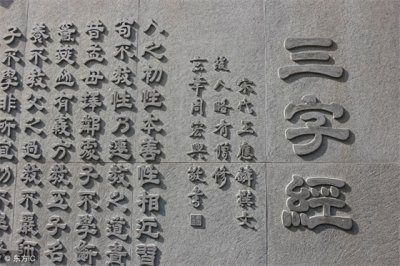 三字經
宋代王應麟撰文
後人略有修
人之初性本善性相近習
苟不教性乃遷教之道貴
昔孟母擇鄰處子不學斷
竇燕山有義方教五子名
養不教父之過教不嚴師
子不學非所宜幼不
© 东方IC